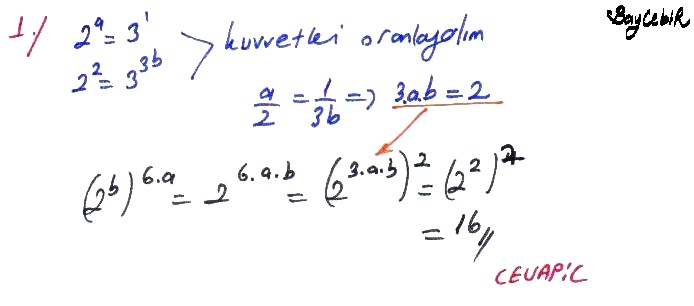 BayCebiR
1./ 2^a = 3^1
2^2 = 3^{3b} > kuvvetleri oranlayalım
a/2 = 1/3b => 3.a.b = 2
(2^b)^{6.a} = 2^{6.a.b} = (2^{3.a.b})^2 = (2^2)^2
= 16//
CEVAP:C